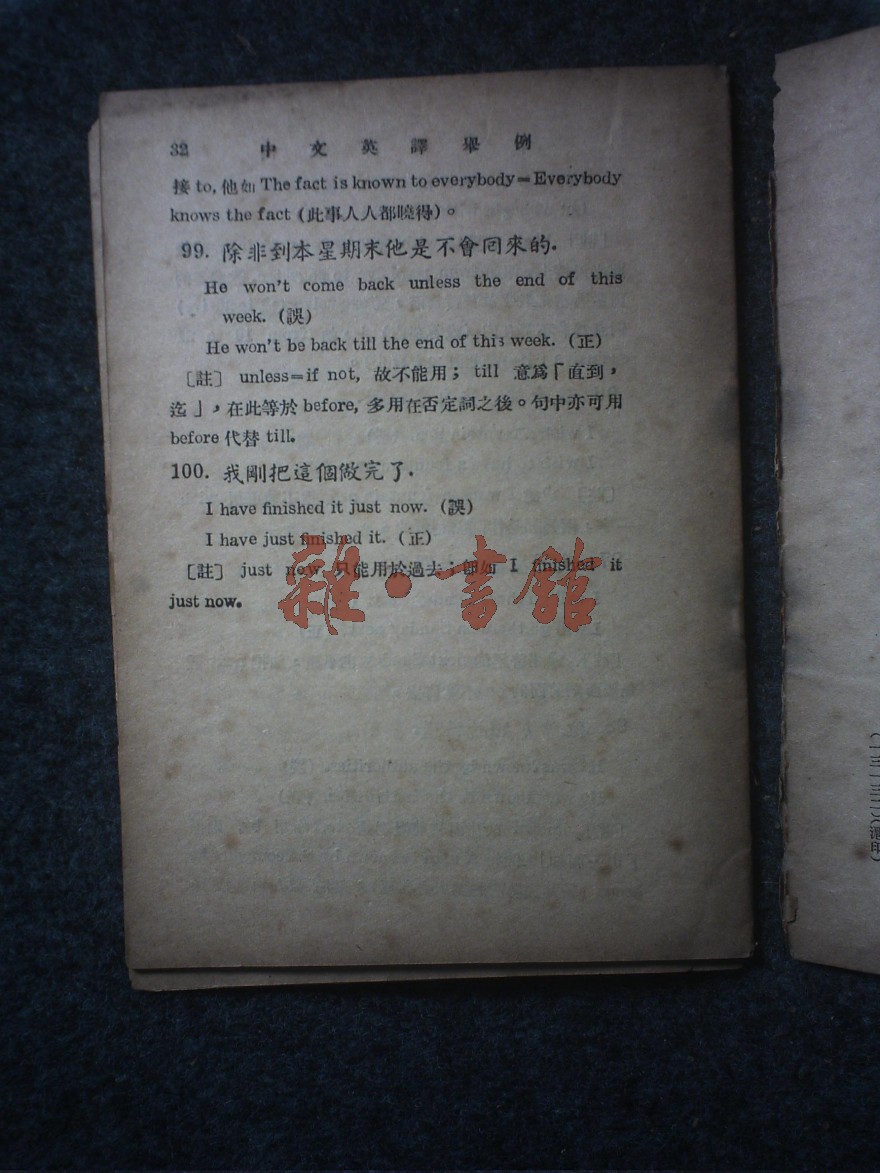 32 中文英譯舉例
接 to, 他如 The fact is known to everybody=Everybody
knows the fact (此事人人都曉得)。
99. 除非到本星期末他是不會回來的.
He won't come back unless the end of this
week. (誤)
He won't be back till the end of this week. (正)
[註] unless=if not, 故不能用; till 意爲「直到,
迄」, 在此等於 before, 多用在否定詞之後。句中亦可用
before 代替 till.
100. 我剛把這個做完了.
I have finished it just now. (誤)
I have just finished it. (正)
[註] just now 只能用於過去; 卽如 I finished it
just now.
雜·書館